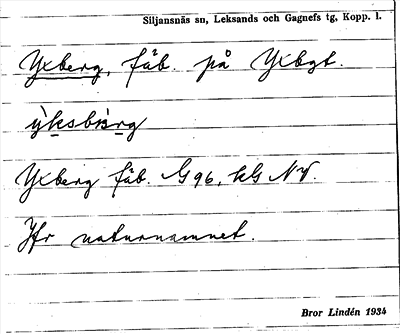 Siljansnäs sn, Leksands och Gagnefs tg, Kopp. l.
Yxberg, fäb. på Yxbgt.
Yxberg fäb. G 96, kG NV.
Jfr naturnamnet.
Bror Lindén 1934